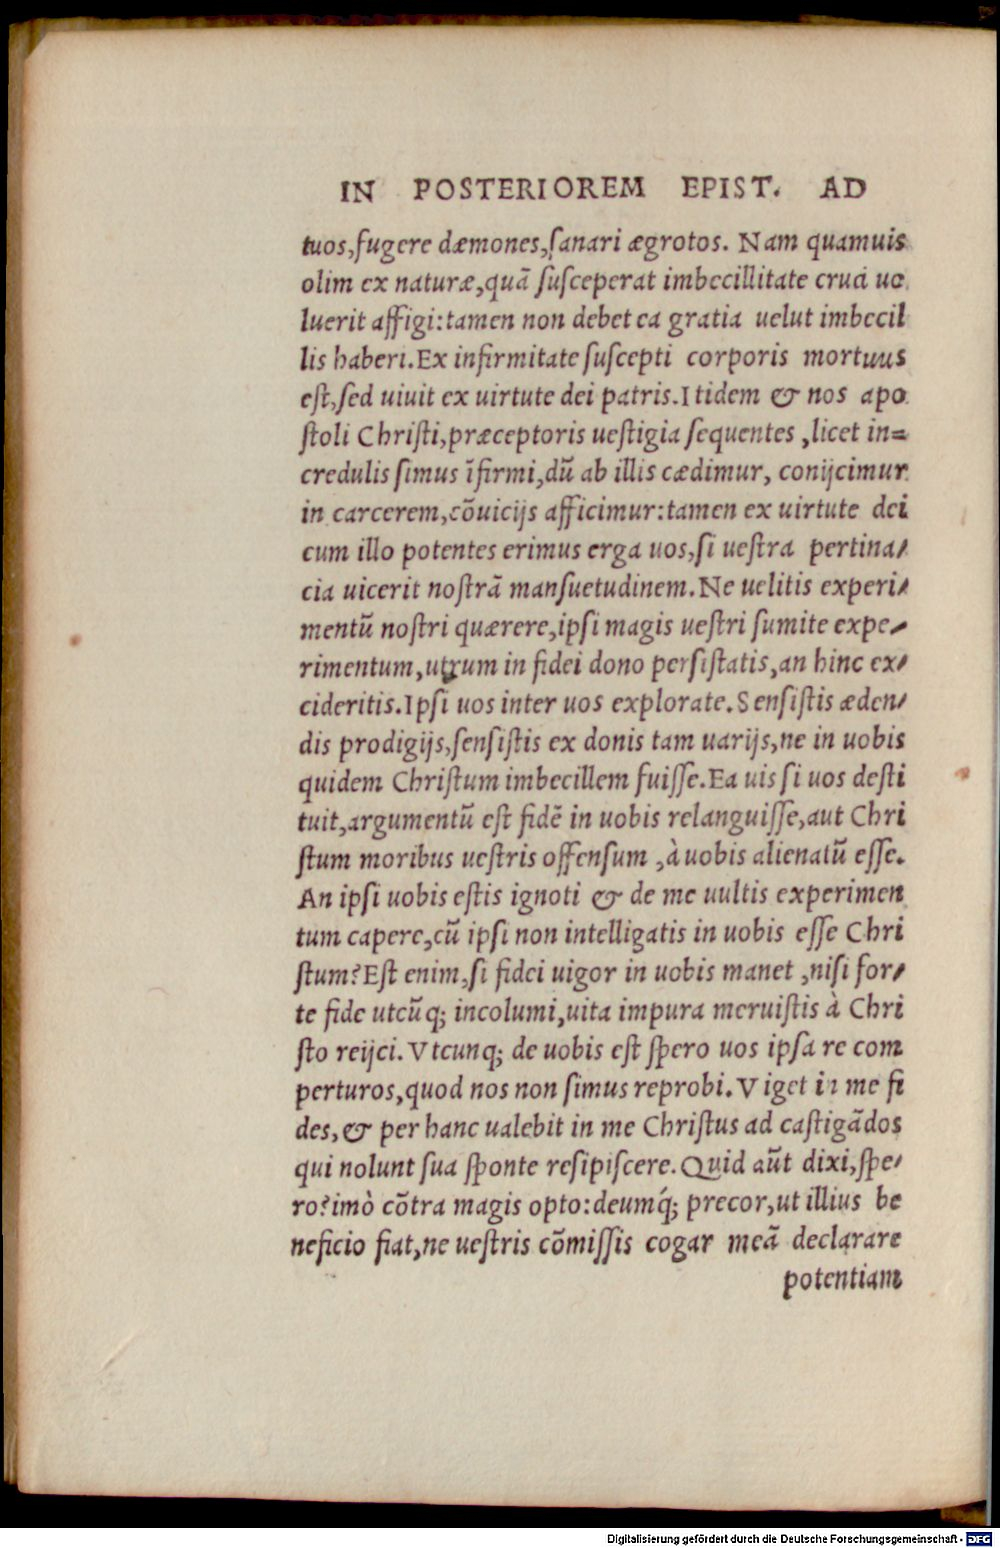 IN POSTERIOREM EPIST. AD
tuos,fugere dæmones,ſanari ægrotos. Nam quamuis
olim ex naturæ,quã ſuſceperat imbecillitate cruci uo
luerit affigi:tamen non debet ea gratia uelut imbecil
lis haberi.Ex infirmitate ſuſcepti corporis mortuus
eſt,ſed uiuit ex uirtute dei patris.Itidem & nos apo
ſtoli Chriſti,præceptoris ueſtigia ſequentes ,licet in=
credulis ſimus ĩfirmi,dũ ab illis cædimur, conijcimur
in carcerem,cõuicijs afficimur:tamen ex uirtute dei
cum illo potentes erimus erga uos,ſi ueſtra pertina/
cia uicerit noſtrã manſuetudinem.Ne uelitis experi/
mentũ noſtri quærere,ipſi magis ueſtri ſumite expe/
rimentum,utrum in fidei dono perſiſtatis,an hinc ex/
cideritis.Ipſi uos inter uos explorate.Senſiſtis æden/
dis prodigijs,ſenſiſtis ex donis tam uarijs,ne in uobis
quidem Chriſtum imbecillem fuiſſe.Ea uis ſi uos deſti
tuit,argumentũ eſt fidẽ in uobis relanguiſſe,aut Chri
ſtum moribus ueſtris offenſum ,à uobis alienatũ eſſe.
An ipſi uobis eſtis ignoti & de me uultis experimen
tum capere,cũ ipſi non intelligatis in uobis eſſe Chri
ſtum?Eſt enim,ſi fidei uigor in uobis manet ,niſi for/
te fide utcũq; incolumi,uita impura meruiſtis à Chri
ſto reijci.Vtcunq; de uobis eſt ſpero uos ipſa re com
perturos,quod nos non ſimus reprobi.Viget in me fi
des,& per hanc ualebit in me Chriſtus ad caſtigãdos
qui nolunt ſua ſponte reſipiſcere.Quid aũt dixi,ſpe/
ro?imò cõtra magis opto:deumq́; precor,ut illius be
neficio fiat,ne ueſtris cõmiſſis cogar meã declarare
potentiam
Digitalisierung gefördert durch die Deutsche Forschungsgemeinschaft - DFG